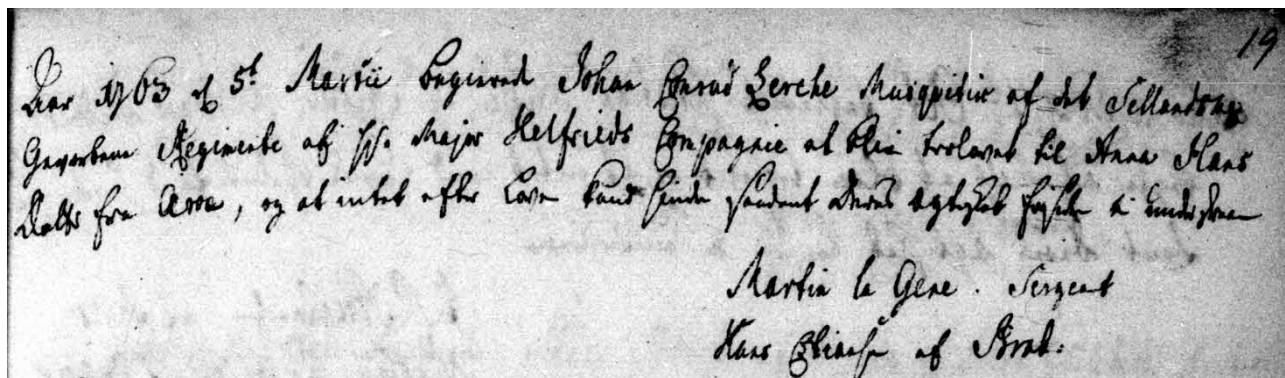 19
Aar 1763 d 5t Martii begierede Johan Conrad Lerche Musqvetir af det Sellandske
Gevorbene Regimente af Hr Major Helfrieds Compagnie at blive trolovet til Anna Hans
Datter fra Aroe, og at intet efter Loven kand hindre saadant deres Ægteskab
Martin la Gene. Sergent
Hans af